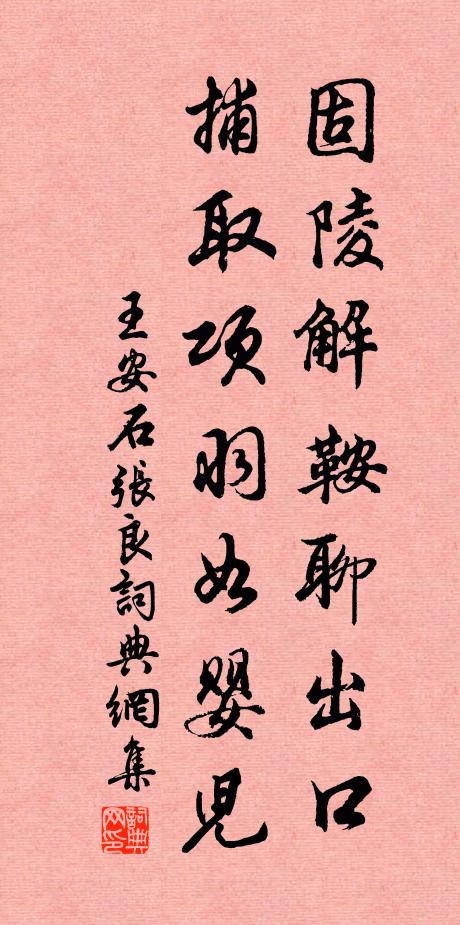 固陵解鞍聊出口
捕取项羽如婴児
王安石張良詞典網集
詞典网印